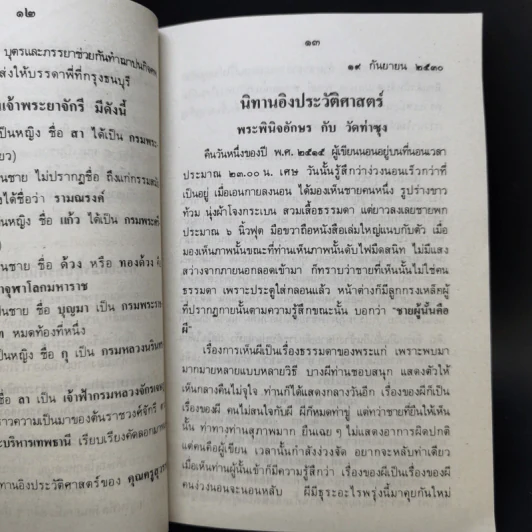 ๑๒
บุตรและภรรยาช่วยกันทำ
ส่งให้บรรดาพี่ที่กรุงธนบุรี
เจ้าพระยาจักรี มีดังนี้
เป็นหญิง ชื่อ สา ได้เป็น กรมพระ
นชาย ไม่ปรากฏชื่อ ถึงแก่กรรม
ได้ชื่อว่า รามณรงค์
เป็นหญิง ชื่อ แก้ว ได้เป็น กรมพระ
นชาย ชื่อ ด้วง หรือ ทองด้วง
าจุฬาโลกมหาราช
นชาย ชื่อ บุญมา เป็น กรมพระราช
ท หมดท้องที่หนึ่ง
นหญิง ชื่อ กุ เป็น กรมหลวงนรินท
ชื่อ ลา เป็น เจ้าฟ้ากรมหลวงจักรเจษ
ราวความเป็นมาของต้นราชวงศ์จักรี
ะบริหารเทพธานี เรียบเรียงคัดลอก
นิทานอิงประวัติศาสตร์ของ คุณครู
๑๓
๑๙ กันยายน ๒๕๓๐
นิทานอิงประวัติศาสตร์
พระพินิจอักษร กับ วัดท่าซุง
คืนวันหนึ่งของปี พ.ศ. ๒๕๑๕ ผู้เขียนนอนอยู่บนที่นอนเวลา
ประมาณ ๒๓.๐๐ น. เศษ วันนั้นรู้สึกว่าง่วงนอนเร็วกว่าที่
เป็นอยู่ เมื่อเอนกายลงนอน ได้มองเห็นชายคนหนึ่ง รูปร่างขาว
ท้วม นุ่งผ้าโจงกระเบน สวมเสื้อธรรมดา แต่ยาวลงเลยชายพก
ประมาณ ๖ นิ้วฟุต มือขวาถือหนังสือเล่มใหญ่แนบกับตัว เมื่อ
มองเห็นภาพนั้นขณะที่ท่านเห็นภาพนั้นดับไฟมืดสนิท ไม่มีแสง
สว่างจากภายนอกลอดเข้ามา ก็ทราบว่าชายที่เห็นนั้นไม่ใช่คน
ธรรมดา เพราะประตูใส่กลอนแล้ว หน้าต่างก็มีลูกกรงเหล็กผู้
ที่ปรากฏกายนั้นตามความรู้สึกขณะนั้น บอกว่า "ชายผู้นั้นคือ
ผี"
เรื่องการเห็นผีเป็นเรื่องธรรมดาของพระแก่ เพราะพบมา
มากมายหลายแบบหลายวิธี บางผีท่านชอบสนุก แสดงตัวให้
เห็นกลางคืนไม่จุใจ ท่านก็ได้แสดงกลางวันอีก เรื่องของผีก็เป็น
เรื่องของผี คนไม่สนใจกับผี ผีก็หมดท่าขู่ แต่ทว่าชายที่ยืนให้เห็น
นั้น ท่าทางท่านสุภาพมาก ยืนเฉย ๆ ไม่แสดงอาการผิดปกติ
แต่คนคือผู้เขียน เวลานั้นกำลังง่วงจัด อยากจะหลับท่าเดียว
เมื่อเห็นท่านผู้นั้นเข้าก็มีความรู้สึกว่า เรื่องของผีเป็นเรื่องของผี
คนง่วงนอนจะนอนหลับ ผีมีธุระอะไรพรุ่งนี้มาคุยกันใหม่